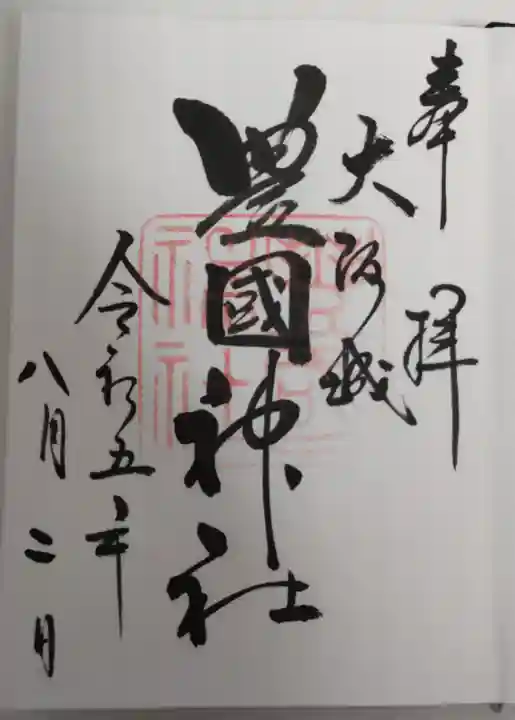 奉拝
大阪城
豊國神社
令和五年
八月二日